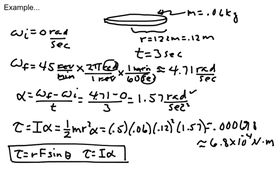 Example...
m=.06kg
r=12cm=.12m
ωi=0 rad/sec
t=3sec
ωf=45 rev/min × 2π rad/1 rev × 1 min/60 sec ≈ 4.71 rad/sec
α = ωf-ωi/t = 4.71-0/3 = 1.57 rad/sec²
τ=Iα=½mr²α=(.5)(.06)(.12)²(1.57)=.000678
≈6.8x10⁻⁴N·m
τ=rFsinθ τ=Iα